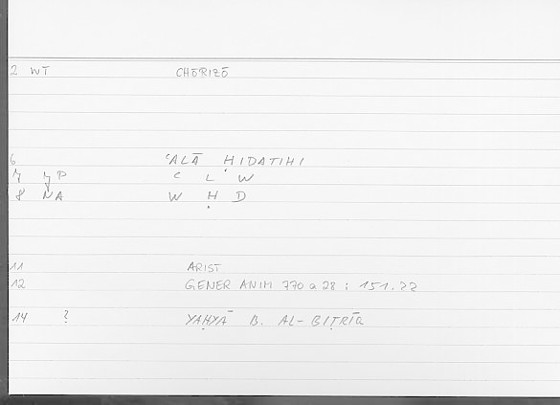 2 WT CHŌRIZŌ
6 ʿALĀ ḤIDATIHI
7 MP C L W
8 NA W Ḥ D
11 ARIST
12 GENER ANIM 770 a 28 : 151.22
14 ? YAḤYĀ B. AL-BIṬRĪQ